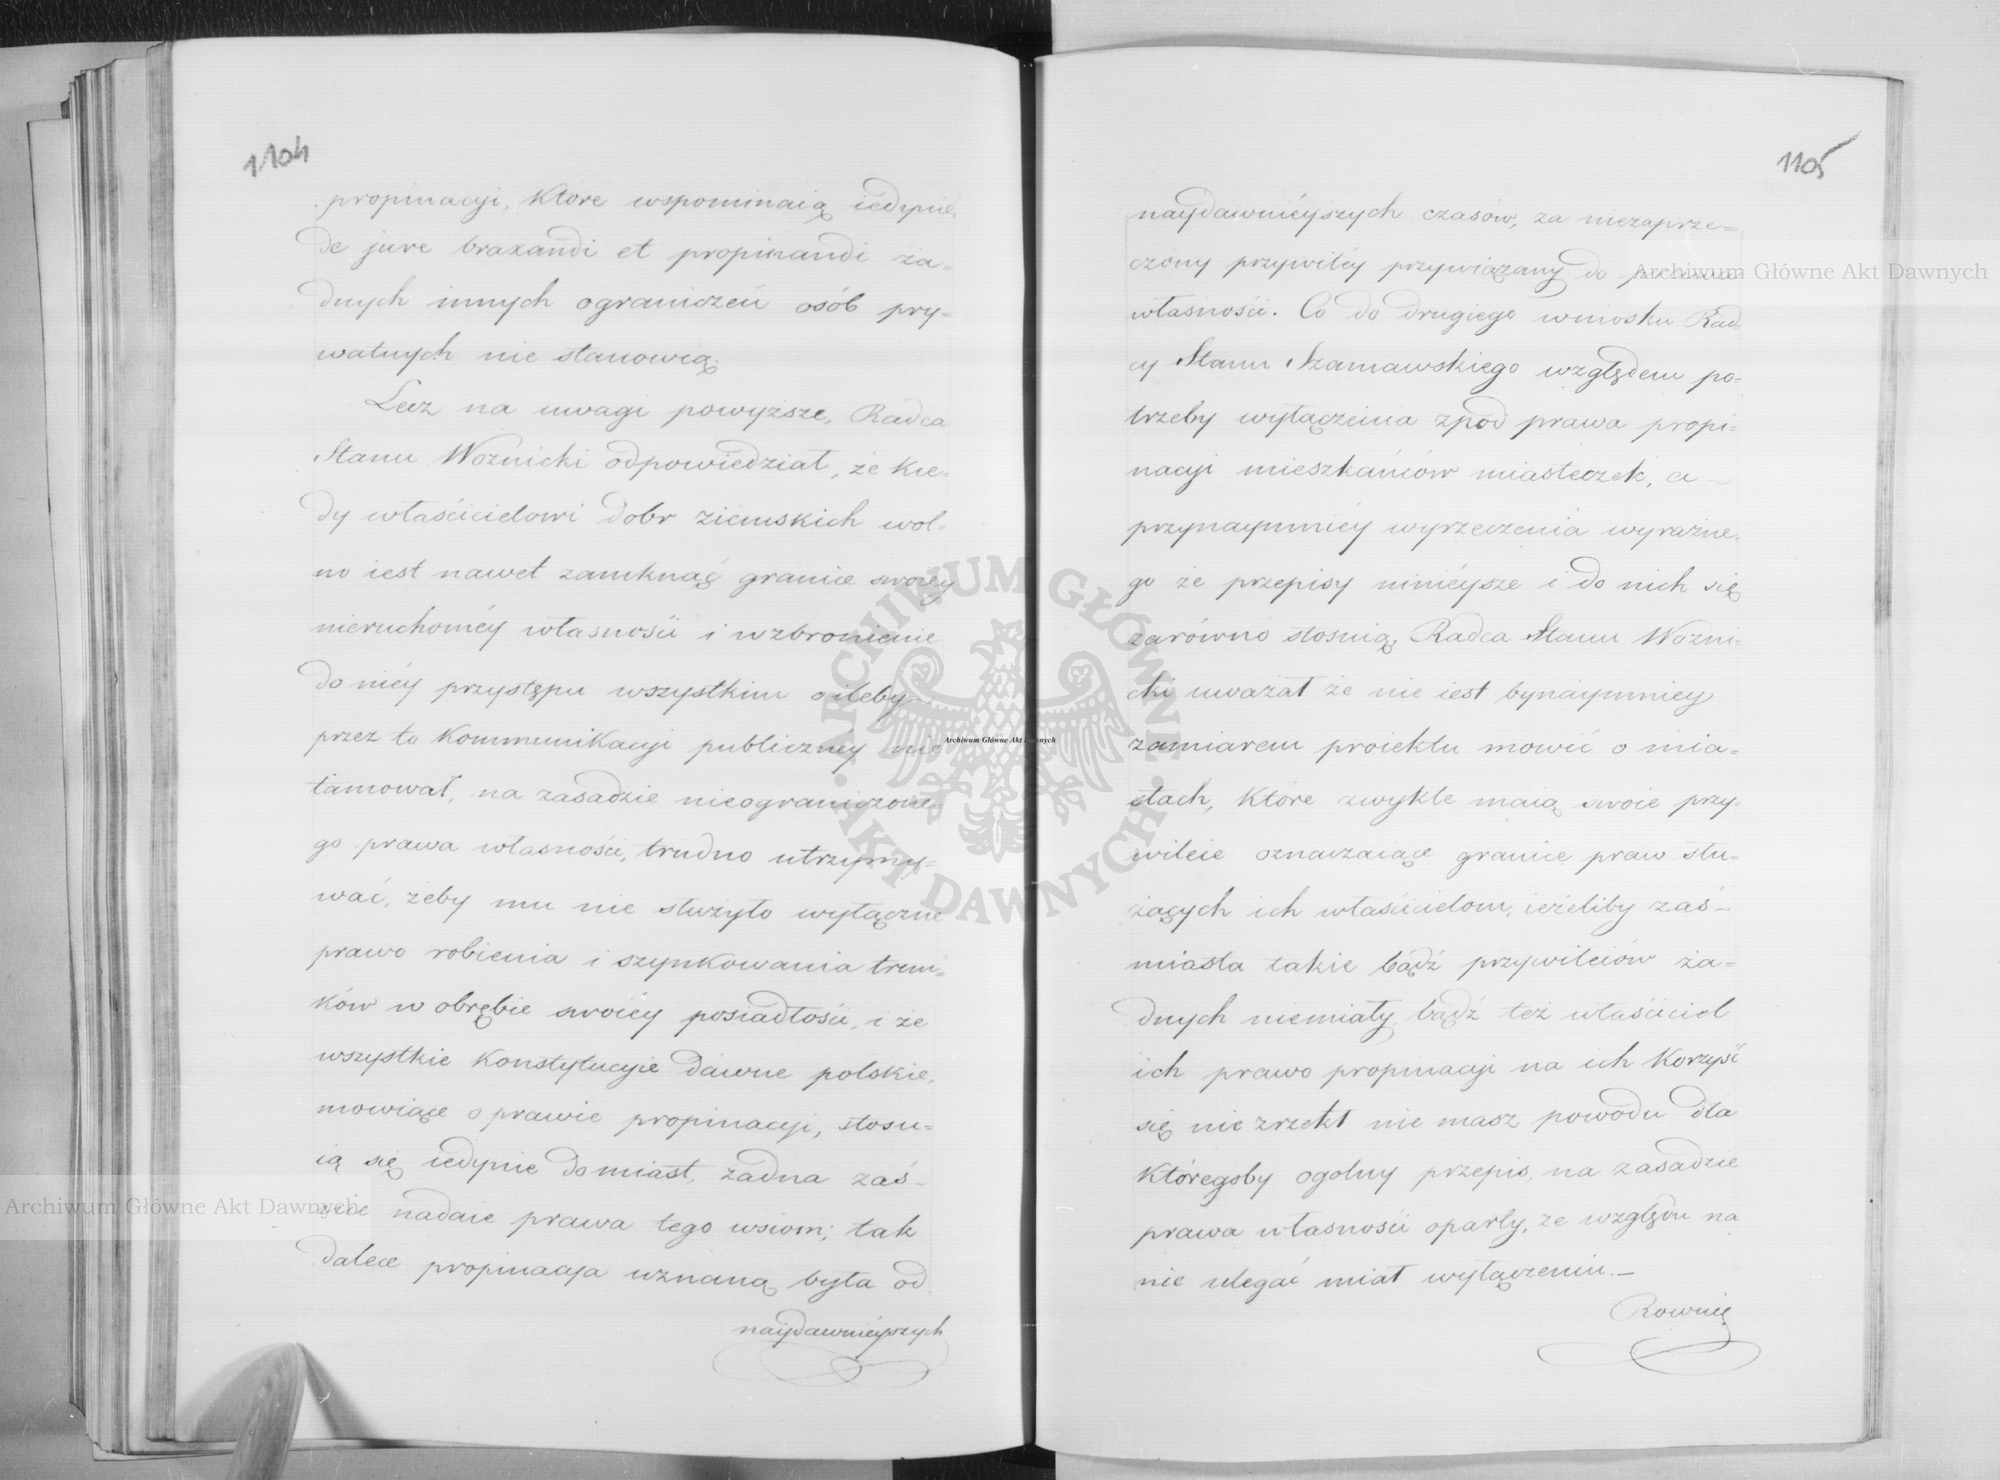 1104
propinacyi, które wspominaią iedynie
de jure braxandi et propinandi ża-
dnych innych ograniczeń osób pry-
watnych nie stanowią.
Lecz na uwagi powyższe, Radca
Stanu Woznicki odpowiedział, że kie-
dy właścicielowi dobr ziemskich wol-
no iest nawet zamknąć granice swoiey
nieruchoméy własności i wzbronienie
do niéy przystępu wszystkim o ileby
przez to kommunikacyi publiczney nie
tamował, na zasadzie nieograniczone-
go prawa własności, trudno utrzymy-
wać, żeby mu nie służyło wyłączne
prawo robienia i szynkowania trun-
ków w obrębie swoiéy posiadłości, i że
wszystkie konstytucyie dawne polskie,
mowiące o prawie propinacyi, stosu-
ią się iedynie do miast, żadna zaś
nie nadaie prawa tego wsiom; tak
dalece propinacyia uznaną była od
naydawniéyszych
1105
naydawniéyszych czasów, za niezaprze-
czony przywiléy przywiązany do prawa
własności. Co do drugiego wniosku Rad-
cy Stanu Szaniawskiego względem po-
trzeby wyłączenia zpod prawa propi-
nacyi mieszkańców miasteczek, a
przynaymniéy wyrzeczenia wyraźne-
go że przepisy niniéysze i do nich się
zarówno stosuią, Radca Stanu Wozni-
cki uważał że nie iest bynaymniey
zamiarem proiektu mowić o mia-
stach, które zwykle maią swoie przy-
wileie oznaczaiące granice praw słu-
żących ich właścicielom, ieżeliby zaś
miasta takie bądź przywileiów ża-
dnych niemiały, bądź też właściciel
ich prawo propinacyi na ich korzyść
się nie zrzekł nie masz powodu dla
któregoby ogolny przepis, na zasadzie
prawa własności oparty, ze względu na
nie ulegać miał wyłączeniu.—
Rownie
Archiwum Główne Akt Dawnych
Archiwum Główne Akt Dawnych
Archiwum Główne Akt Dawnych
ARCHIWUM GŁÓWNE
AKT DAWNYCH